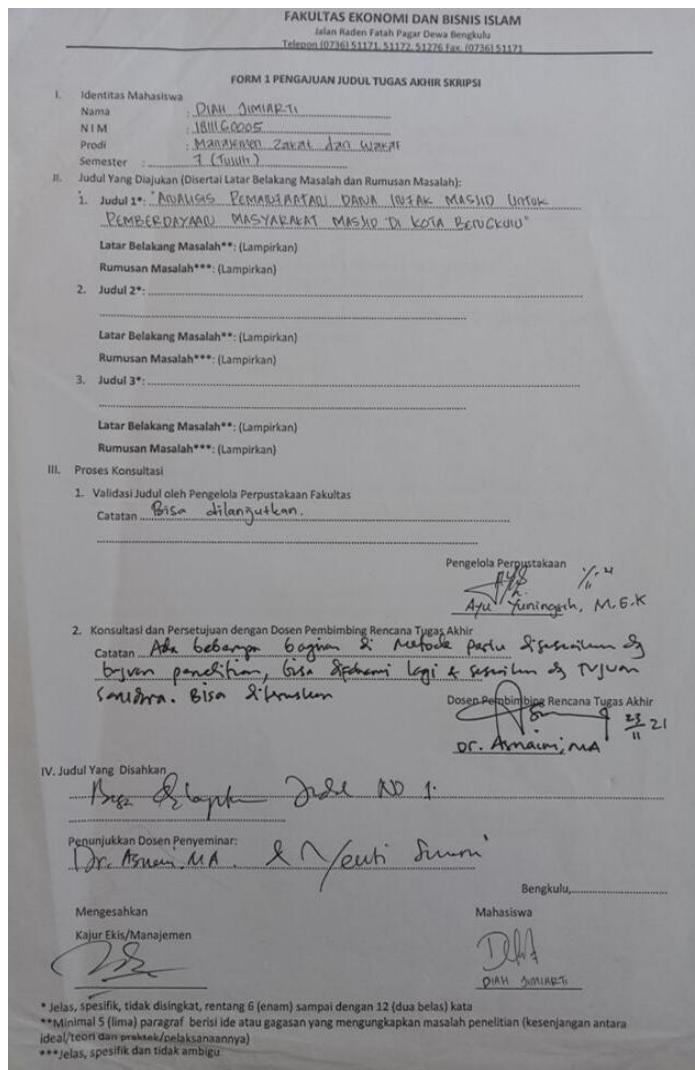 FAKULTAS EKONOMI DAN BISNIS ISLAM
Jalan Raden Fatah Pagar Dewa Bengkulu
Telepon (0736) 51171, 51172, 51276 Fax. (0736) 51171
FORM 1 PENGAJUAN JUDUL TUGAS AKHIR SKRIPSI
I. Identitas Mahasiswa
Nama : DIAH JIMIARTI
NIM : 1811160005
Prodi : Manajemen Zakat dan Wakaf
Semester : 7 (Tujuh)
II. Judul Yang Diajukan (Disertai Latar Belakang Masalah dan Rumusan Masalah):
1. Judul 1*: "ANALISIS PEMANFAATAN DANA INFAK MASJID UNTUK
PEMBERDAYAAN MASYARAKAT MASJID DI KOTA BENGKULU"
Latar Belakang Masalah**: (Lampirkan)
Rumusan Masalah***: (Lampirkan)
2. Judul 2*:
Latar Belakang Masalah**: (Lampirkan)
Rumusan Masalah***: (Lampirkan)
3. Judul 3*:
Latar Belakang Masalah**: (Lampirkan)
Rumusan Masalah***: (Lampirkan)
III. Proses Konsultasi
1. Validasi Judul oleh Pengelola Perpustakaan Fakultas
Catatan Bisa dilanjutkan.
Pengelola Perpustakaan
Ayu Yuningsih, M.E.K
2. Konsultasi dan Persetujuan dengan Dosen Pembimbing Rencana Tugas Akhir
Catatan Ada beberapa bagian di Metode perlu disesuaikan dg
tujuan penelitian, bisa difahami lagi & sesuaikan dg Tujuan
Saudara. Bisa diteruskan
Dosen Pembimbing Rencana Tugas Akhir
23/11 21
Dr. Asnaini, MA
IV. Judul Yang Disahkan
Judul NO 1.
Penunjukkan Dosen Penyeminar:
Dr. Asnaini, MA. & Yenti Sumarni
Bengkulu,
Mengesahkan
Mahasiswa
Kajur Ekis/Manajemen
DIAH JIMIARTI
* Jelas, spesifik, tidak disingkat, rentang 6 (enam) sampai dengan 12 (dua belas) kata
**Minimal 5 (lima) paragraf berisi ide atau gagasan yang mengungkapkan masalah penelitian (kesenjangan antara
ideal/teori dan praktek/pelaksanaannya)
***Jelas, spesifik dan tidak ambigu